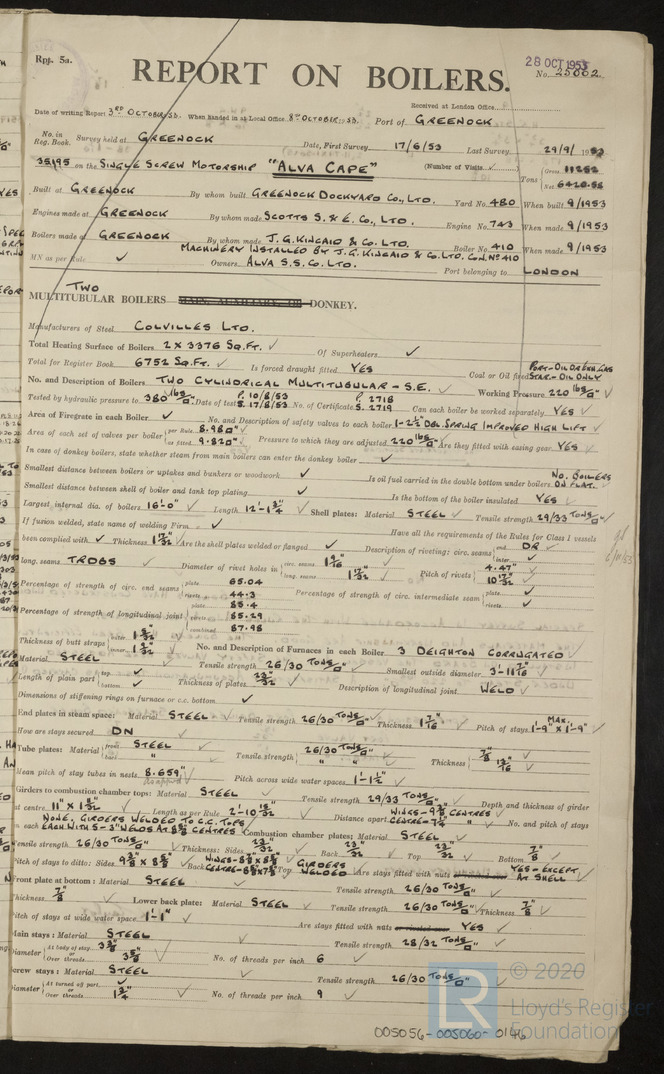 Rpt. 5a.
28 OCT 1953
REPORT ON BOILERS.
No. 25002.
Received at London Office
Date of writing Report 3RD OCTOBER 53. When handed in at Local Office 8TH OCTOBER 1953. Port of GREENOCK
No. in Reg. Book. Survey held at GREENOCK Date, First Survey 17/6/53 Last Survey 29/9/1953
35195 on the SINGLE SCREW MOTORSHIP "ALVA CAPE" (Number of Visits ✓) Tons Gross 11252 Net 6420.58
Built at GREENOCK By whom built GREENOCK DOCKYARD CO., LTD. Yard No. 480 When built 9/1953
Engines made at GREENOCK By whom made SCOTTS S. & E. CO., LTD. Engine No. 743 When made 9/1953
Boilers made at GREENOCK By whom made J. G. KINCAID & CO. LTD. Boiler No. 410 When made 9/1953
MACHINERY INSTALLED BY J. G. KINCAID & CO. LTD. CON. Nº 410
MN as per Rule ✓ Owners ALVA S.S. CO. LTD. Port belonging to LONDON
TWO
MULTITUBULAR BOILERS MAIN, AUXILIARY, OR DONKEY.
Manufacturers of Steel COLVILLES LTD.
Total Heating Surface of Boilers 2 X 3376 SQ.FT. ✓ Of Superheaters ✓
Total for Register Book 6752 SQ.FT. ✓ Is forced draught fitted YES Coal or Oil fired PORT-OIL OR EXH. GAS STAR-OIL ONLY
No. and Description of Boilers TWO CYLINDRICAL MULTITUBULAR - S.E. ✓ Working Pressure 220 lbs/□" ✓
Tested by hydraulic pressure to 380 lbs/□" Date of test P. 10/8/53 S. 17/8/53 No. of Certificate P. 2718 S. 2719 Can each boiler be worked separately YES ✓
Area of Firegrate in each Boiler ✓ No. and Description of safety valves to each boiler 1-2½" DBL. SPRING IMPROVED HIGH LIFT ✓
Area of each set of valves per boiler per Rule 8.98□" as fitted 9.82□" ✓ Pressure to which they are adjusted 220 lbs/□" Are they fitted with easing gear YES ✓
In case of donkey boilers, state whether steam from main boilers can enter the donkey boiler ✓
Smallest distance between boilers or uptakes and bunkers or woodwork ✓ Is oil fuel carried in the double bottom under boilers NO. BOILERS ON FLAT. ✓
Smallest distance between shell of boiler and tank top plating ✓ Is the bottom of the boiler insulated YES ✓
Largest internal dia. of boilers 16'-0" ✓ Length 12'-1¾" ✓ Shell plates: Material STEEL ✓ Tensile strength 29/33 TONS/□" ✓
If fusion welded, state name of welding Firm ✓ Have all the requirements of the Rules for Class 1 vessels
been complied with ✓ Thickness 1 17/32" ✓ Are the shell plates welded or flanged ✓ Description of riveting: circ. seams end DR ✓ inter. ✓
long. seams TRDBS ✓ Diameter of rivet holes in circ. seams 1 9/16" long. seams 1 17/32" ✓ Pitch of rivets 4.47" 10 17/32" ✓
Percentage of strength of circ. end seams plate 65.04 rivets 44.3 Percentage of strength of circ. intermediate seam plate ✓ rivets ✓
Percentage of strength of longitudinal joint plate 85.4 rivets 85.29 combined 87.98
Thickness of butt straps outer inner No. and Description of Furnaces in each Boiler 3 DEIGHTON CORRUGATED ✓
Material STEEL ✓ Tensile strength 26/30 TONS/□" ✓ Smallest outside diameter 3'-11 7/16" ✓
Length of plain part top ✓ bottom ✓ Thickness of plates 23/32" ✓ Description of longitudinal joint WELD ✓
Dimensions of stiffening rings on furnace or c.c. bottom ✓
End plates in steam space: Material STEEL ✓ Tensile strength 26/30 TONS/□" ✓ Thickness 1 7/16" ✓ Pitch of stays MAX. 1'-9" X 1'-9" ✓
How are stays secured DN ✓
Tube plates: Material front STEEL back " ✓ Tensile strength 26/30 TONS/□" " ✓ Thickness 7/8" 13/16" ✓
Mean pitch of stay tubes in nests 8.659" ✓ Pitch across wide water spaces 1'-1½" ✓
Girders to combustion chamber tops: Material STEEL ✓ Tensile strength 29/33 TONS/□" ✓ Depth and thickness of girder
at centre 11" X 1 3/32" ✓ Length as per Rule 2'-10 ✓ Distance apart WINGS-9⅝ CENTRES CENTRE-7¼" ✓ No. and pitch of stays
in each NONE, GIRDERS WELDED TO C.C. TOPS EACH WITH 5-3" WELDS AT CENTRES ✓ Combustion chamber plates: Material STEEL ✓
Tensile strength 26/30 TONS/□" ✓ Thickness: Sides 23/32" Back 23/32" Top 23/32" ✓ Bottom 7/8" ✓
Pitch of stays to ditto: Sides 9⅜" X 8⅝" ✓ Back Top GIRDERS WELDED ✓ Are stays fitted with nuts YES-EXCEPT AT SHELL ✓
Front plate at bottom: Material STEEL ✓ Tensile strength 26/30 TONS/□" ✓
Thickness 7/8" ✓ Lower back plate: Material STEEL ✓ Tensile strength 26/30 TONS/□" ✓ Thickness 7/8" ✓
Pitch of stays at wide water space 1'-1" ✓ Are stays fitted with nuts or riveted over YES ✓
Main stays: Material STEEL ✓ Tensile strength 28/32 TONS/□" ✓
Diameter At body of stay, or Over threads ✓ No. of threads per inch 6 ✓
Screw stays: Material STEEL ✓ Tensile strength 26/30 TONS/□" ✓
Diameter At turned off part, or Over threads 1¾" ✓ No. of threads per inch 9 ✓
LR © 2020
Lloyd's Register
Foundation
005056-005060-0146